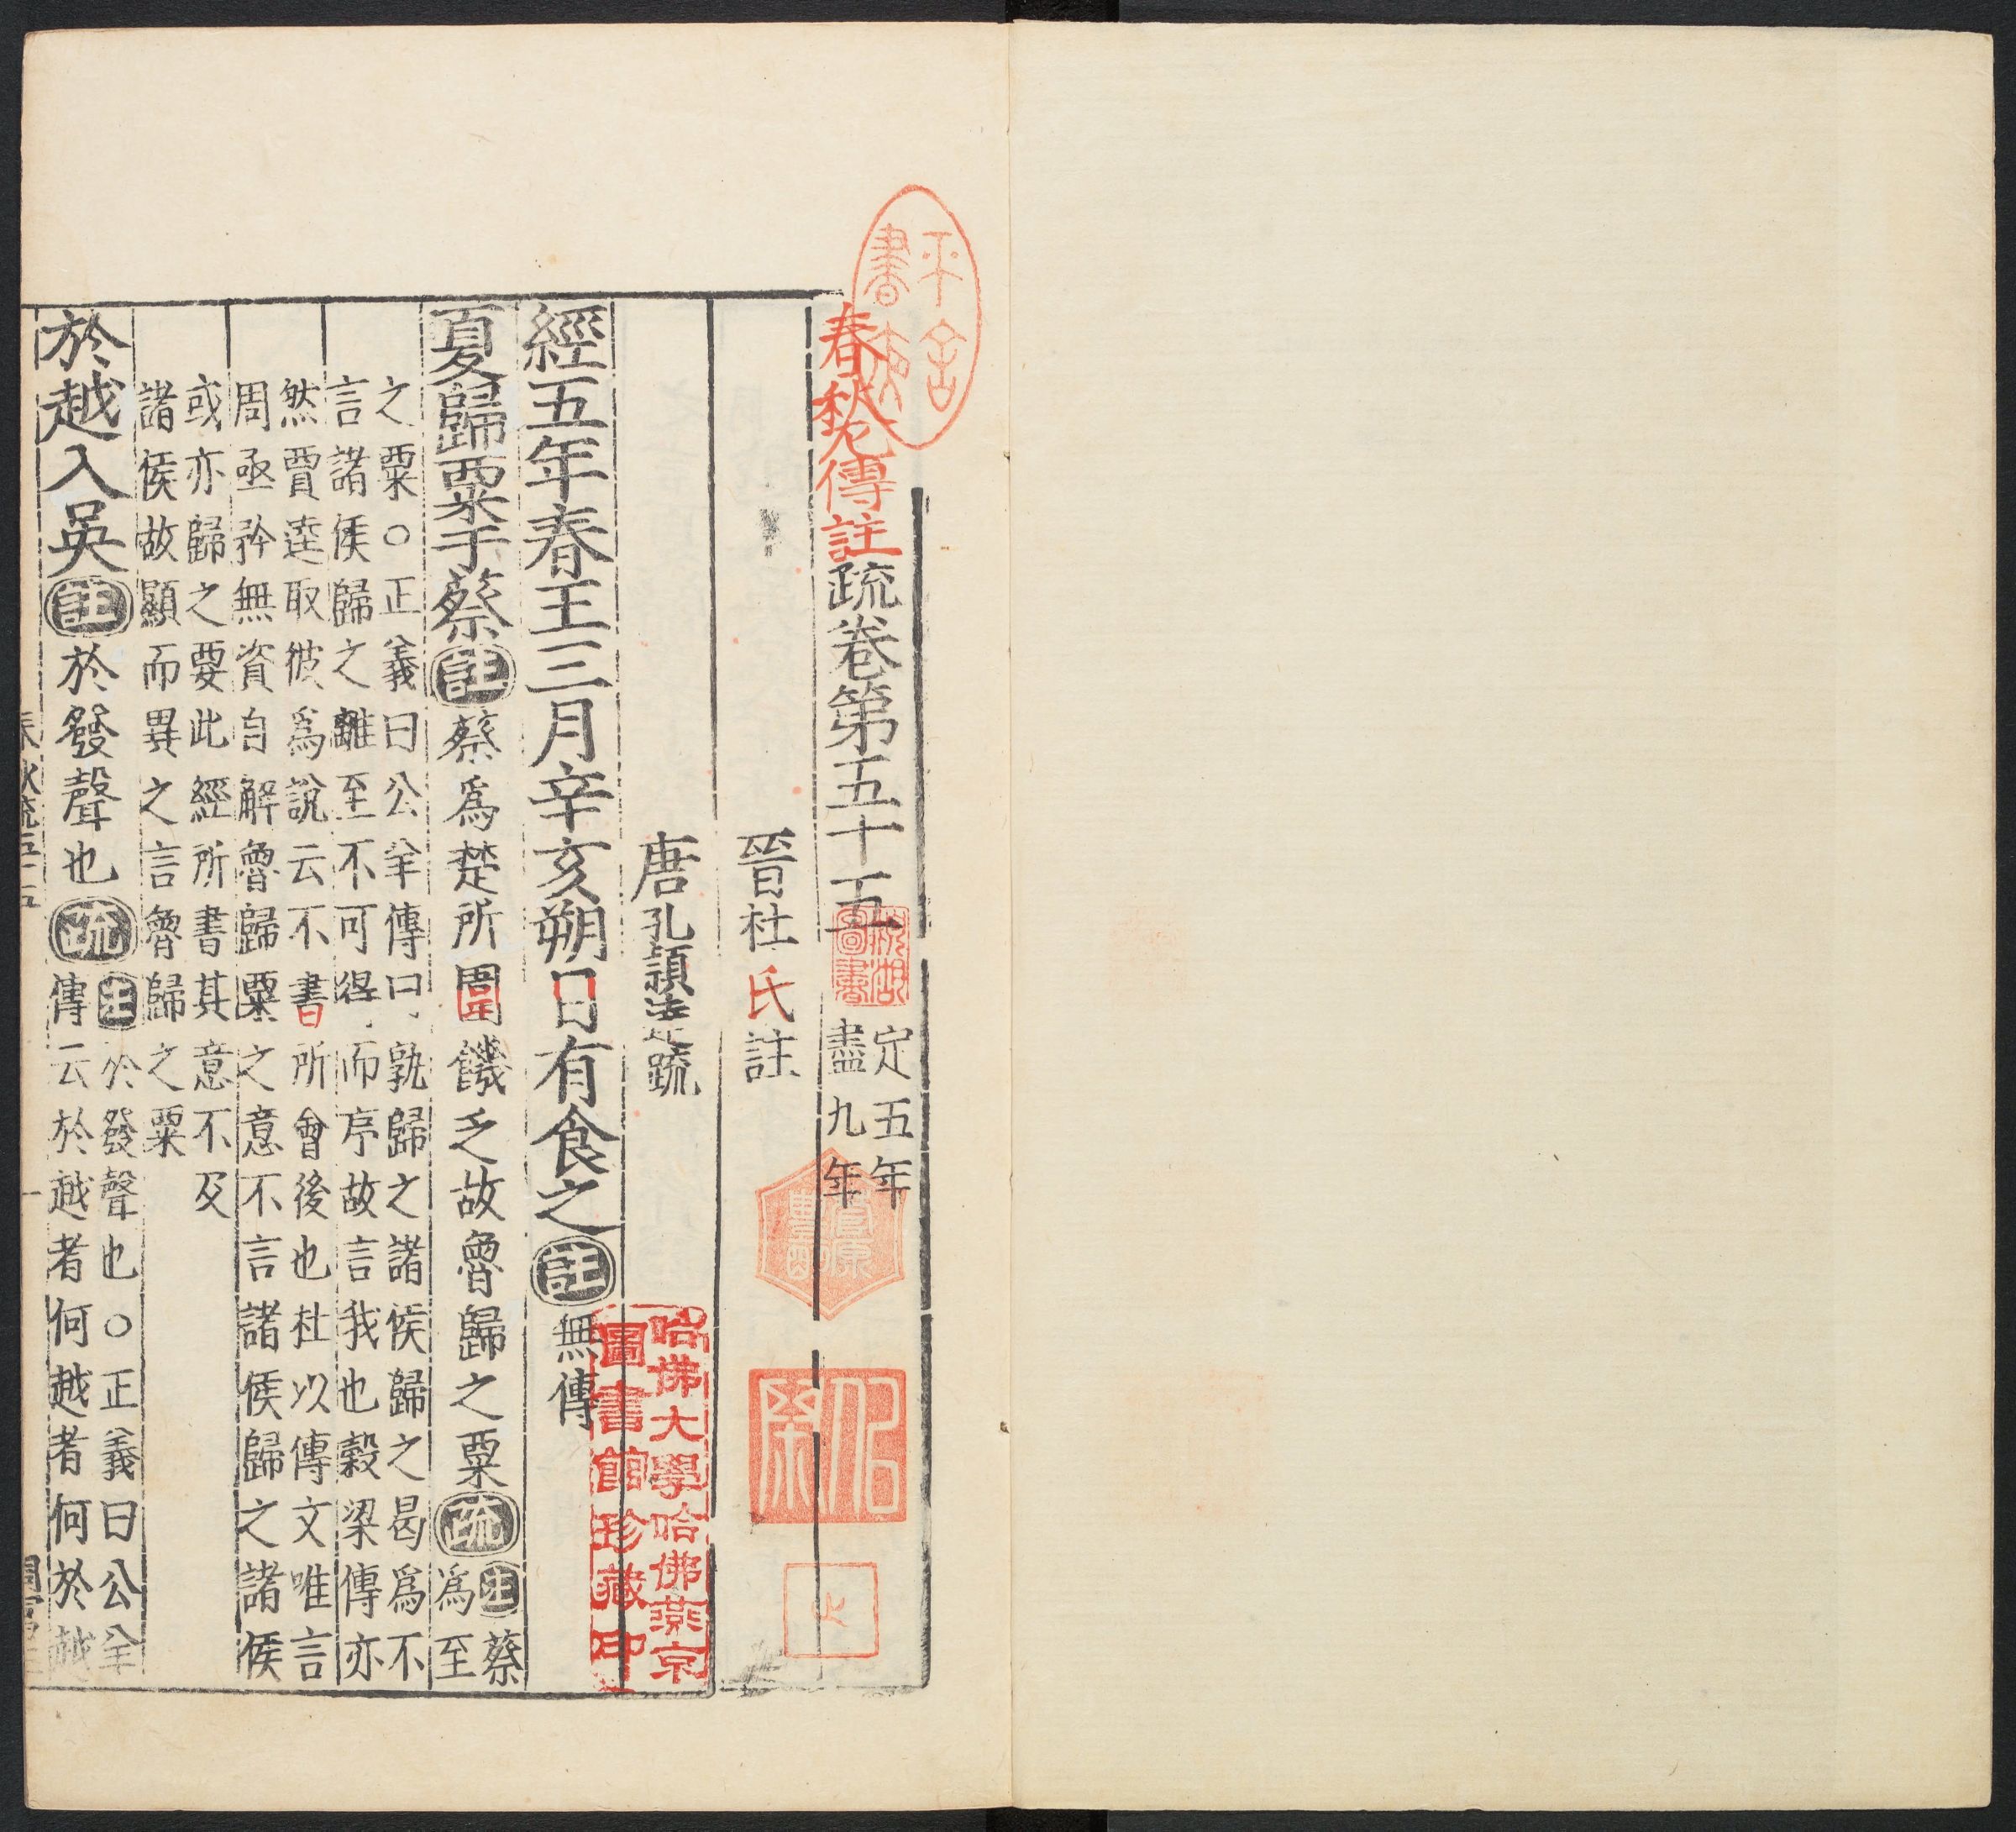 春秋左傳註疏卷第五十五
定五年
盡九年
晉杜氏註
唐孔穎達疏
經五年春王三月辛亥朔日有食之註無傳
夏歸粟于蔡註蔡爲楚所圍饑乏故魯歸之粟疏註蔡
爲至
之粟○正義曰公羊傳曰孰歸之諸侯歸之曷爲不
言諸侯歸之離至不可得而序故言我也穀梁傳亦
然賈逵取彼爲說云不書所會後也杜以傳文唯言
周亟矜無資自解魯歸粟之意不言諸侯歸之諸侯
或亦歸之要此經所書其意不及
諸侯故顯而異之言魯歸之粟
於越入吳註於發聲也疏註於發聲也○正義曰公羊
傳云於越者何越者何於越
秋疏五十五
一
哈佛大學哈佛燕京
圖書館珍藏印
圖書